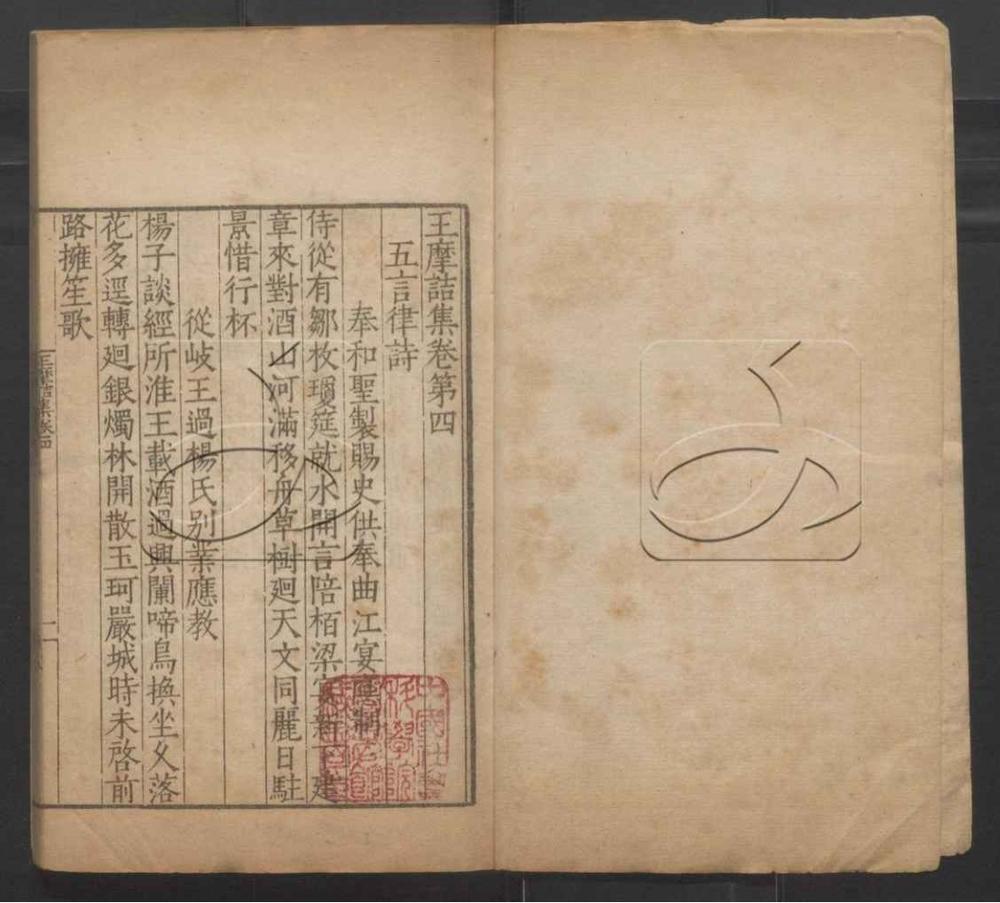 王摩詰集卷第四
五言律詩
奉和聖製賜史供奉曲江宴應制
侍從有鄒枚瓊筵就水開言陪栢梁宴新下建
章來對酒山河滿移舟草樹廻天文同麗日駐
景惜行杯
從岐王過楊氏别業應教
楊子談經所淮王載酒過興闌啼鳥換坐久落
花多逕轉廻銀燭林開散玉珂嚴城時未啓前
路擁笙歌